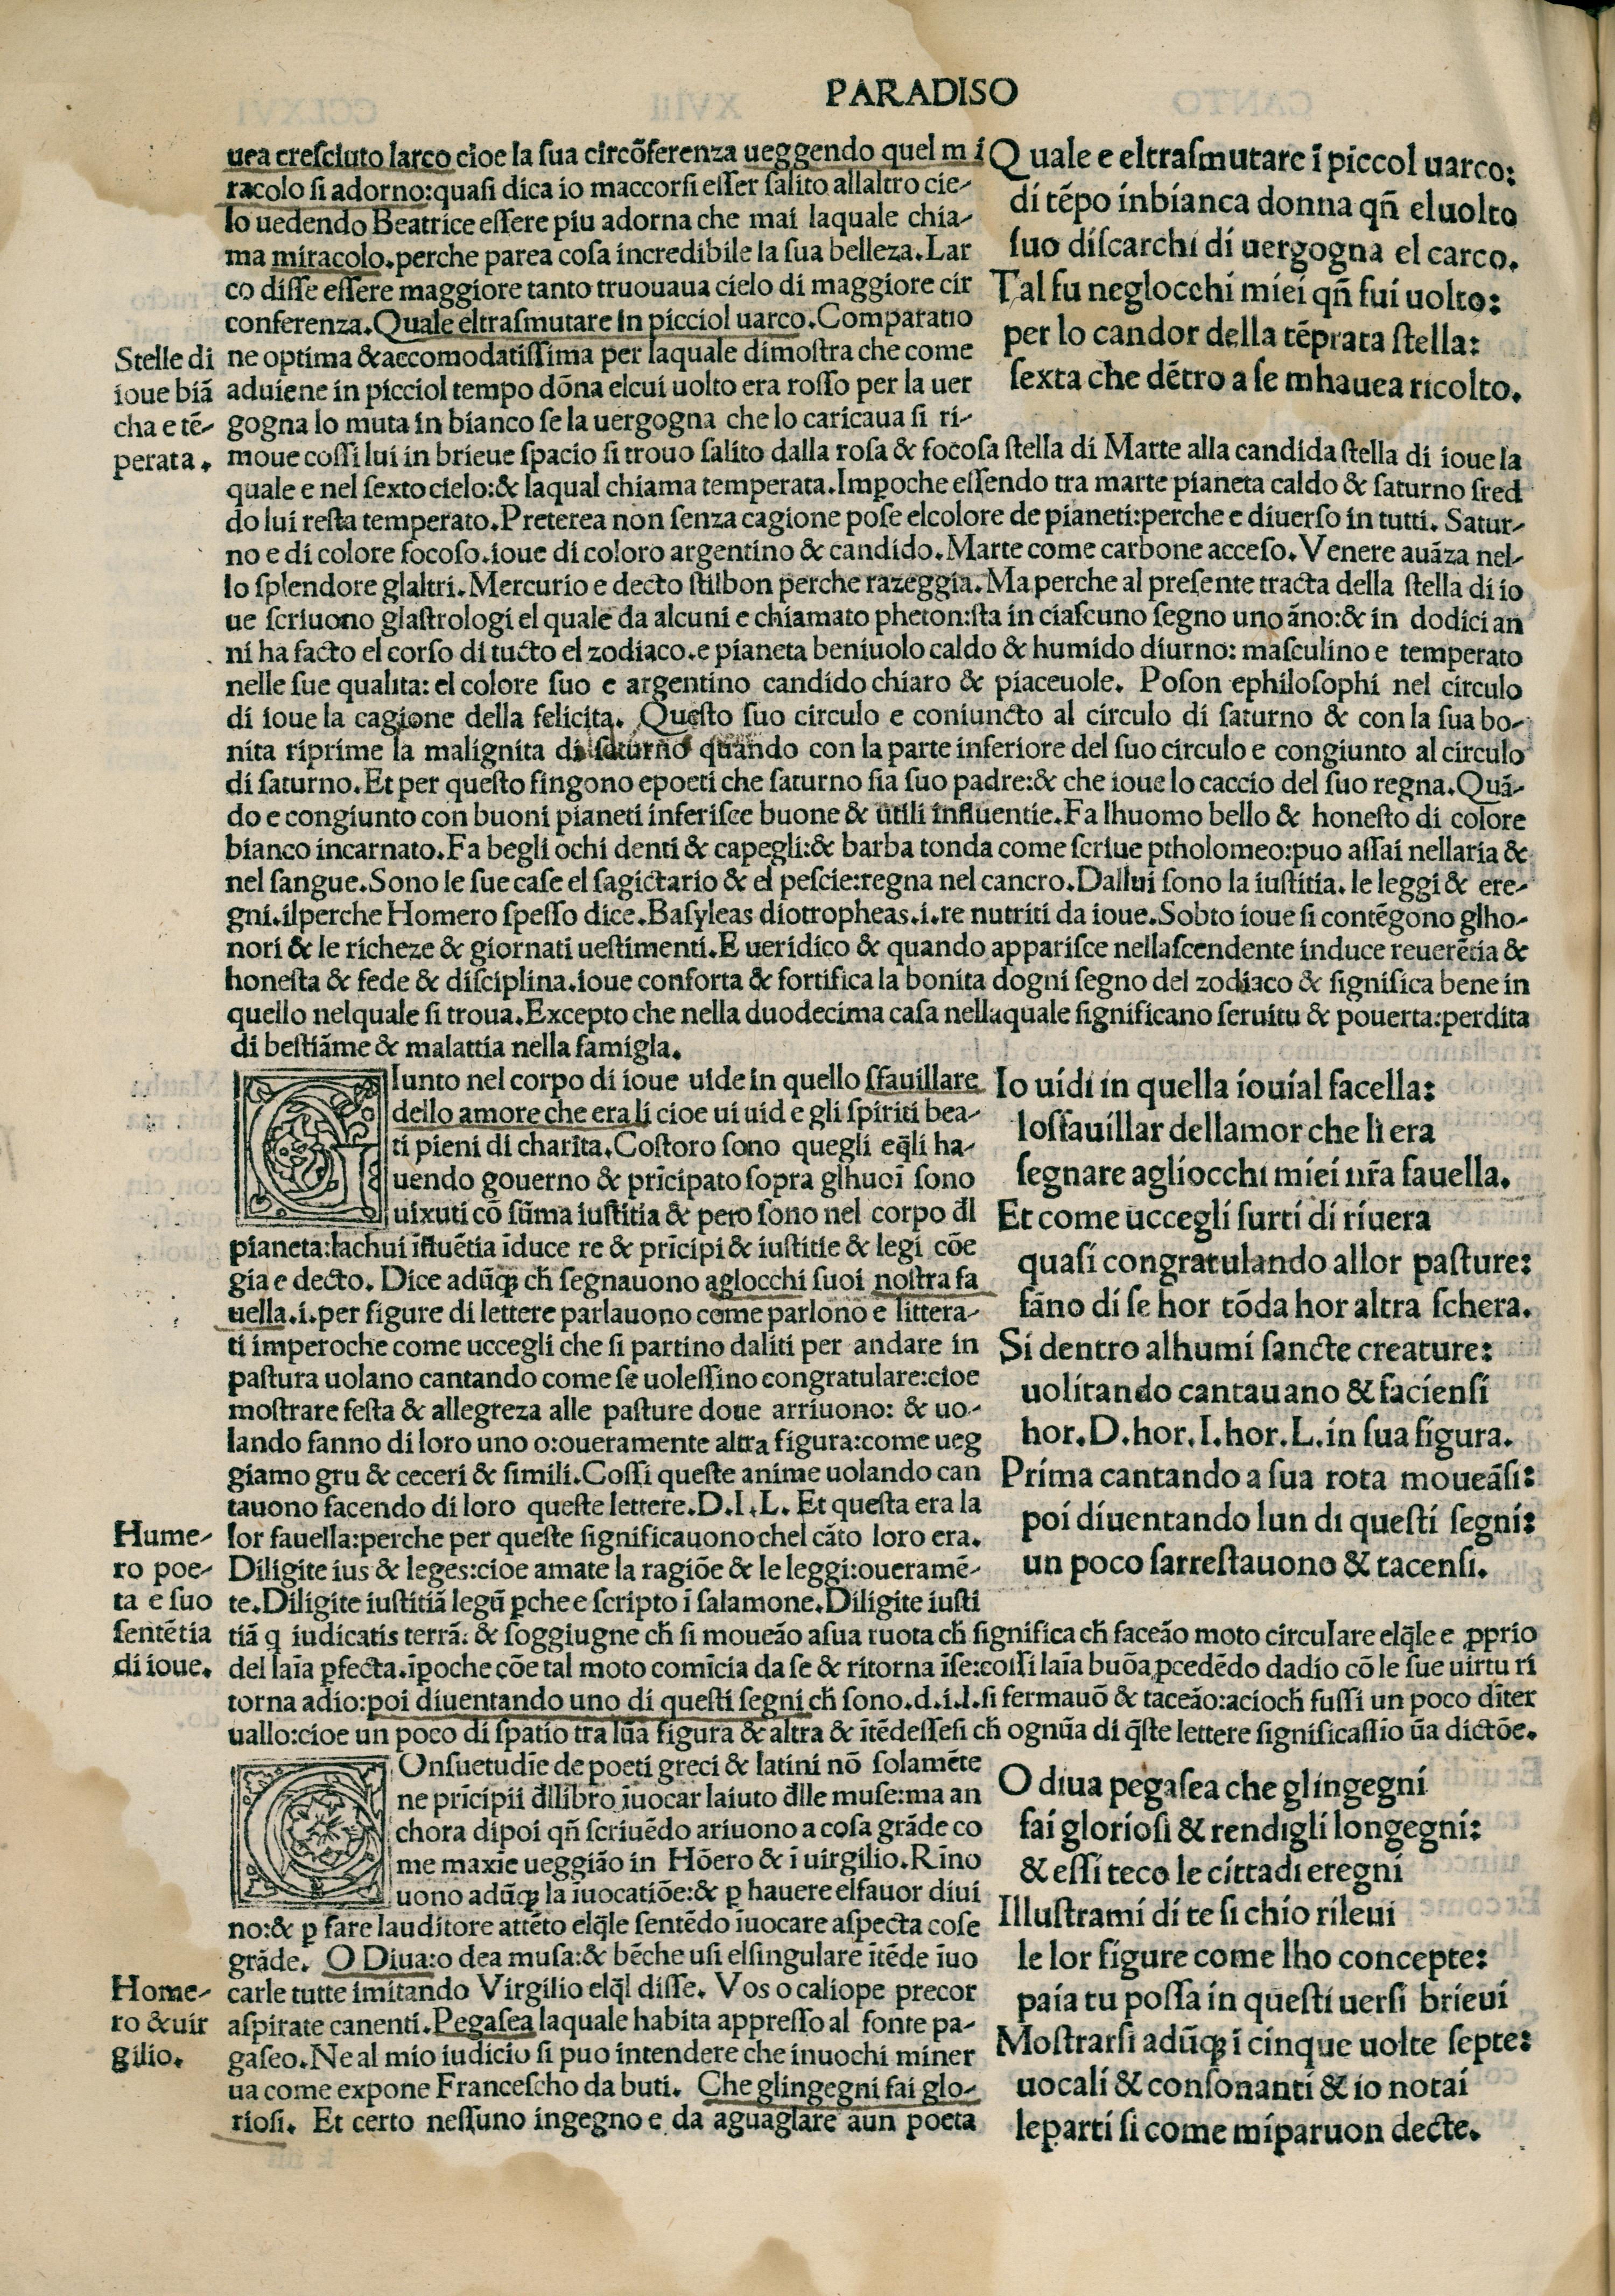 PARADISO
uea cresciuto larco cioe la sua circõferenza ueggendo quel mi
racolo si adorno:quasi dica io maccorsi esser salito allaltro cie-
lo uedendo Beatrice essere piu adorna che mai laquale chia-
ma miracolo.perche parea cosa incredibile la sua belleza.Lar
co disse essere maggiore tanto truouaua cielo di maggiore cir
conferenza.Quale eltrasmutare in picciol uarco.Comparatio
ne optima &accomodatissima per laquale dimostra che come
aduiene in picciol tempo dõna elcui uolto era rosso per la uer
gogna lo muta in bianco se la uergogna che lo caricaua si ri-
Stelle di
ioue biã
cha e tẽ-
perata.
Quale e eltrasmutare ĩ piccol uarco:
di tẽpo inbianca donna qñ eluolto
suo discarchi di uergogna el carco.
Tal fu neglocchi miei qñ fui uolto:
per lo candor della tẽprata stella:
sexta che dẽtro a se mhauea ricolto.
moue cossi lui in brieue spacio si trouo salito dalla rosa & focosa stella di Marte alla candida stella di ioue la
quale e nel sexto cielo:& laqual chiama temperata.Imꝑoche essendo tra marte pianeta caldo & saturno fred
do lui resta temperato.Preterea non senza cagione pose elcolore de pianeti:perche e diuerso in tutti. Satur-
no e di colore focoso.ioue di coloro argentino & candido.Marte come carbone acceso.Venere auãza nel-
lo splendore glaltri.Mercurio e decto stilbon perche razeggia.Ma perche al presente tracta della stella di io
ue scriuono glastrologi el quale da alcuni e chiamato pheton:sta in ciascuno segno uno ãno:& in dodici an
ni ha facto el corso di tucto el zodiaco.e pianeta beniuolo caldo & humido diurno: masculino e temperato
nelle sue qualita: el colore suo e argentino candido chiaro & piaceuole. Poson ephilosophi nel circulo
di ioue la cagione della felicita. Questo suo circulo e coniuncto al circulo di saturno & con la sua bo-
nita riprime la malignita di saturno quando con la parte inferiore del suo circulo e congiunto al circulo
di saturno.Et per questo fingono epoeti che saturno sia suo padre:& che ioue lo caccio del suo regna.Quã-
do e congiunto con buoni pianeti inferisce buone & utili influentie.Fa lhuomo bello & honesto di colore
bianco incarnato.Fa begli ochi denti & capegli:& barba tonda come scriue ptholomeo:puo assai nellaria &
nel sangue.Sono le sue case el sagictario & el pescie:regna nel cancro.Dallui sono la iustitia. le leggi & ere-
gni.ilperche Homero spesso dice.Basyleas diotropheas.i.re nutriti da ioue.Sobto ioue si contẽgono glho-
nori & le richeze & giornati uestimenti.E ueridico & quando apparisce nellascendente induce reuerẽtia &
honesta & fede & disciplina.ioue conforta & fortifica la bonita dogni segno del zodiaco & significa bene in
quello nelquale si troua.Excepto che nella duodecima casa nellaquale significano seruitu & pouerta:perdita
di bestiãme & malattia nella famigla.
GIunto nel corpo di ioue uide in quello sfauillare
dello amore che era li cioe ui uid e gli spiriti bea-
ti pieni di charita.Costoro sono quegli eq̃li ha-
uendo gouerno & prĩcipato sopra glhuoĩ sono
uixuti cõ sũma iustitia & pero sono nel corpo đl
pianeta:lachui ĩfluẽtia ĩduce re & prĩcipi & iustitie & legi cõe
gia e decto. Dice adũqꝫ cħ segnauono aglocchi suoi nostra fa
uella.i.per figure di lettere parlauono come parlono e littera-
ti imperoche come uccegli che si partino daliti per andare in
pastura uolano cantando come se uolessino congratulare:cioe
mostrare festa & allegreza alle pasture doue arriuono: & uo-
lando fanno di loro uno o:oueramente altra figura:come ueg
giamo gru & ceceri & simili.Cossi queste anime uolando can
tauono facendo di loro queste lettere.D.I.L. Et questa era la
lor fauella:perche per queste significauono chel cãto loro era.
Diligite ius & leges:cioe amate la ragiõe & le leggi:oueramẽ-
te.Diligite iustitiã legũ ꝑche e scripto ĩ salamone.Diligite iusti
Io uidi in quella iouial facella:
losfauillar dellamor che li era
segnare agliocchi miei nr̃a fauella.
Et come uccegli surti di riuera
quasi congratulando allor pasture:
fãno di se hor tõda hor altra schera.
Si dentro alhumi sancte creature:
uolitando cantauano & faciensi
hor.D.hor.I.hor.L.in sua figura.
Prima cantando a sua rota moueãsi:
poi diuentando lun di questi segni:
un poco sarrestauono & tacensi.
Hume-
ro poe-
ta e suo
sentẽtia
di ioue.
tiã q iudicatis terrã. & soggiugne cħ si moueão asua ruota cħ significa cħ faceão moto circulare elq̃le e ꝓprio
del laĩa ꝑfecta.ĩꝑoche cõe tal moto comĩcia da se & ritorna ĩse:cossi laĩa buõa ꝓcedẽdo dadio cõ le sue uirtu ri
torna adio:poi diuentando uno di questi segni cħ sono.d.i.l.si fermauõ & taceão:aciocħ fussi un poco dĩter
uallo:cioe un poco di spatio tra lũa figura & altra & ĩtẽdessesi cħ ognũa di q̃ste lettere significassĩo ũa dictõe.
COnsuetudĩe de poeti greci & latini nõ solamẽte
ne prĩcipii đllibro ĩuocar laiuto đlle muse:ma an
chora dipoi qñ scriuẽdo ariuono a cosa grãde co
me maxĩe ueggião in Hõero & ĩ uirgilio.Rĩno
uono adũqꝫ la ĩuocatiõe:& ꝑ hauere elfauor diui
no:& ꝑ fare lauditore attẽto elq̃le sentẽdo ĩuocare aspecta cose
grãde. O Diua:o dea musa:& bẽche usi elsingulare ĩtẽde ĩuo
carle tutte imitando Virgilio elq̃l disse. Vos o caliope precor
aspirate canenti.Pegasea laquale habita appresso al fonte pa-
gaseo.Ne al mio iudicio si puo intendere che inuochi miner
ua come expone Francescho da buti. Che glingegni fai glo-
riosi. Et certo nessuno ingegno e da aguaglare aun poeta
Home-
ro &uir
gilio.
O diua pegasea che glingegni
fai gloriosi & rendigli longegni:
& essi teco le cittadi eregni
Illustrami di te si chio rileui
le lor figure come lho concepte:
paia tu possa in questi uersi brieui
Mostrarsi adũqꝫ ĩ cinque uolte septe:
uocali & consonanti & io notai
leparti si come miparuon decte.